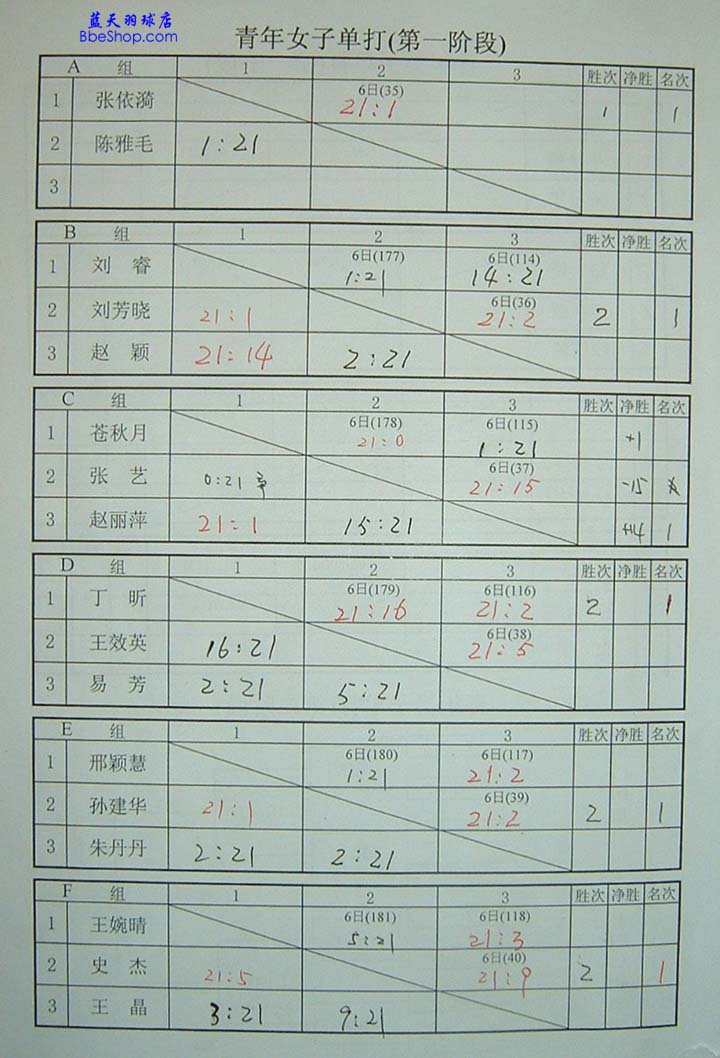 蓝天羽球店
BbeShop.com
青年女子单打(第一阶段)
A 组 1 2 3 胜次 净胜 名次
1 张依漪 6日(35) 21:1 1 1
2 陈雅毛 1:21
3
B 组 1 2 3 胜次 净胜 名次
1 刘 睿 6日(177) 1:21 6日(114) 14:21
2 刘芳晓 21:1 6日(36) 21:2 2 1
3 赵 颖 21:14 2:21
C 组 1 2 3 胜次 净胜 名次
1 苍秋月 6日(178) 21:0 6日(115) 1:21 +1
2 张 艺 0:21 6日(37) 21:15 -15
3 赵丽萍 21:1 15:21 +14 1
D 组 1 2 3 胜次 净胜 名次
1 丁 昕 6日(179) 21:16 6日(116) 21:2 2 1
2 王效英 16:21 6日(38) 21:5
3 易 芳 2:21 5:21
E 组 1 2 3 胜次 净胜 名次
1 邢颖慧 6日(180) 1:21 6日(117) 21:2
2 孙建华 21:1 6日(39) 21:2 2 1
3 朱丹丹 2:21 2:21
F 组 1 2 3 胜次 净胜 名次
1 王婉晴 6日(181) 5:21 6日(118) 21:3
2 史 杰 21:5 6日(40) 21:9 2 1
3 王 晶 3:21 9:21